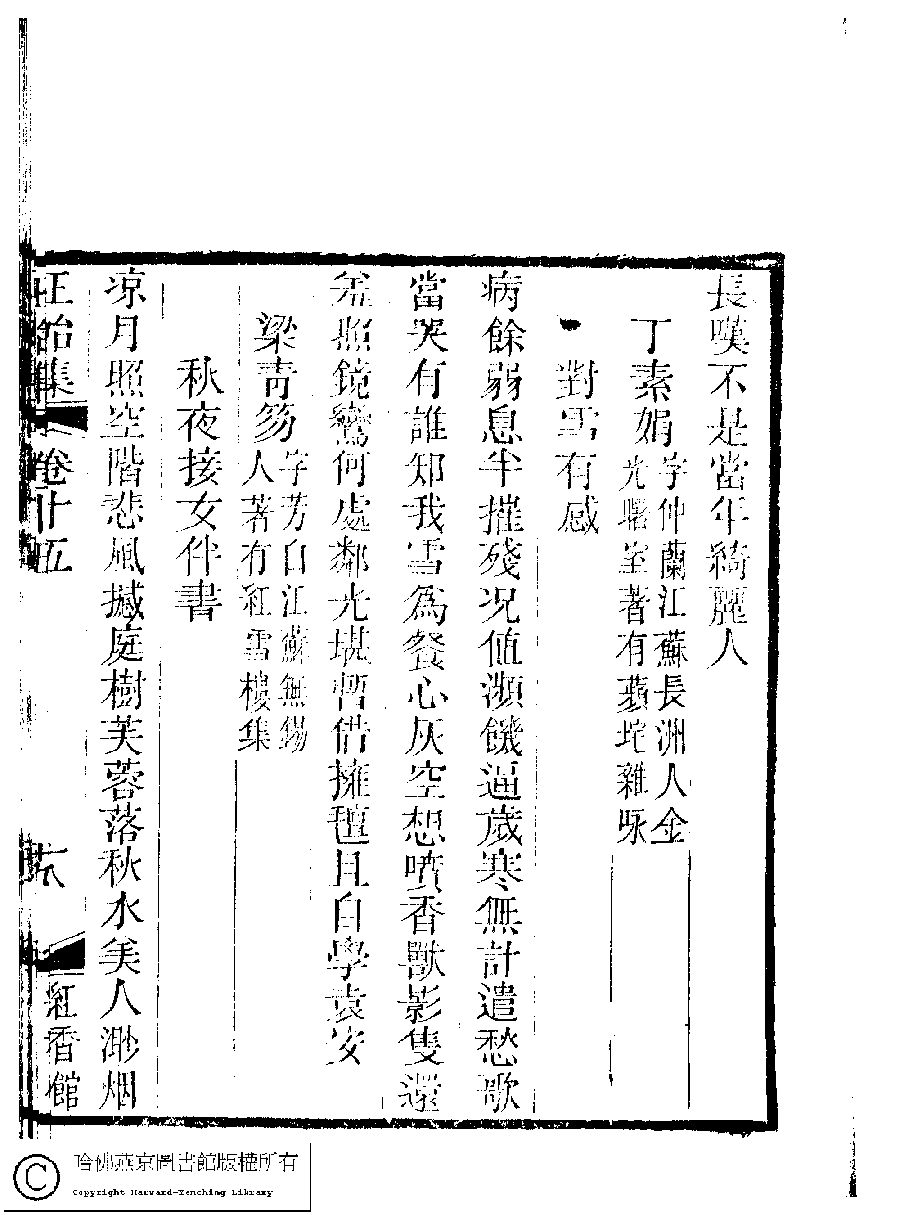 長嘆不是當年綺麗人
丁素娟
字仲蘭江蘇長洲人金
光曙室著有蘋坨雜咏
對雪有感
病餘弱息半摧殘况值瀕饑逼歲寒無計遣愁歌
當哭有誰知我雪爲餐心灰空想噴香獸影隻還
羞照鏡鸞何處鄰光堪暫借擁氊且自學袁安
梁靑笏
字芳白江蘇無錫
人著有紅雪樓集
秋夜接女伴書
凉月照空階悲風撼庭樹芙蓉落秋水美人渺烟
正始集
卷廿五
六
紅香館
哈佛燕京圖書館版權所有
Copyright Harvard-Yenching Library